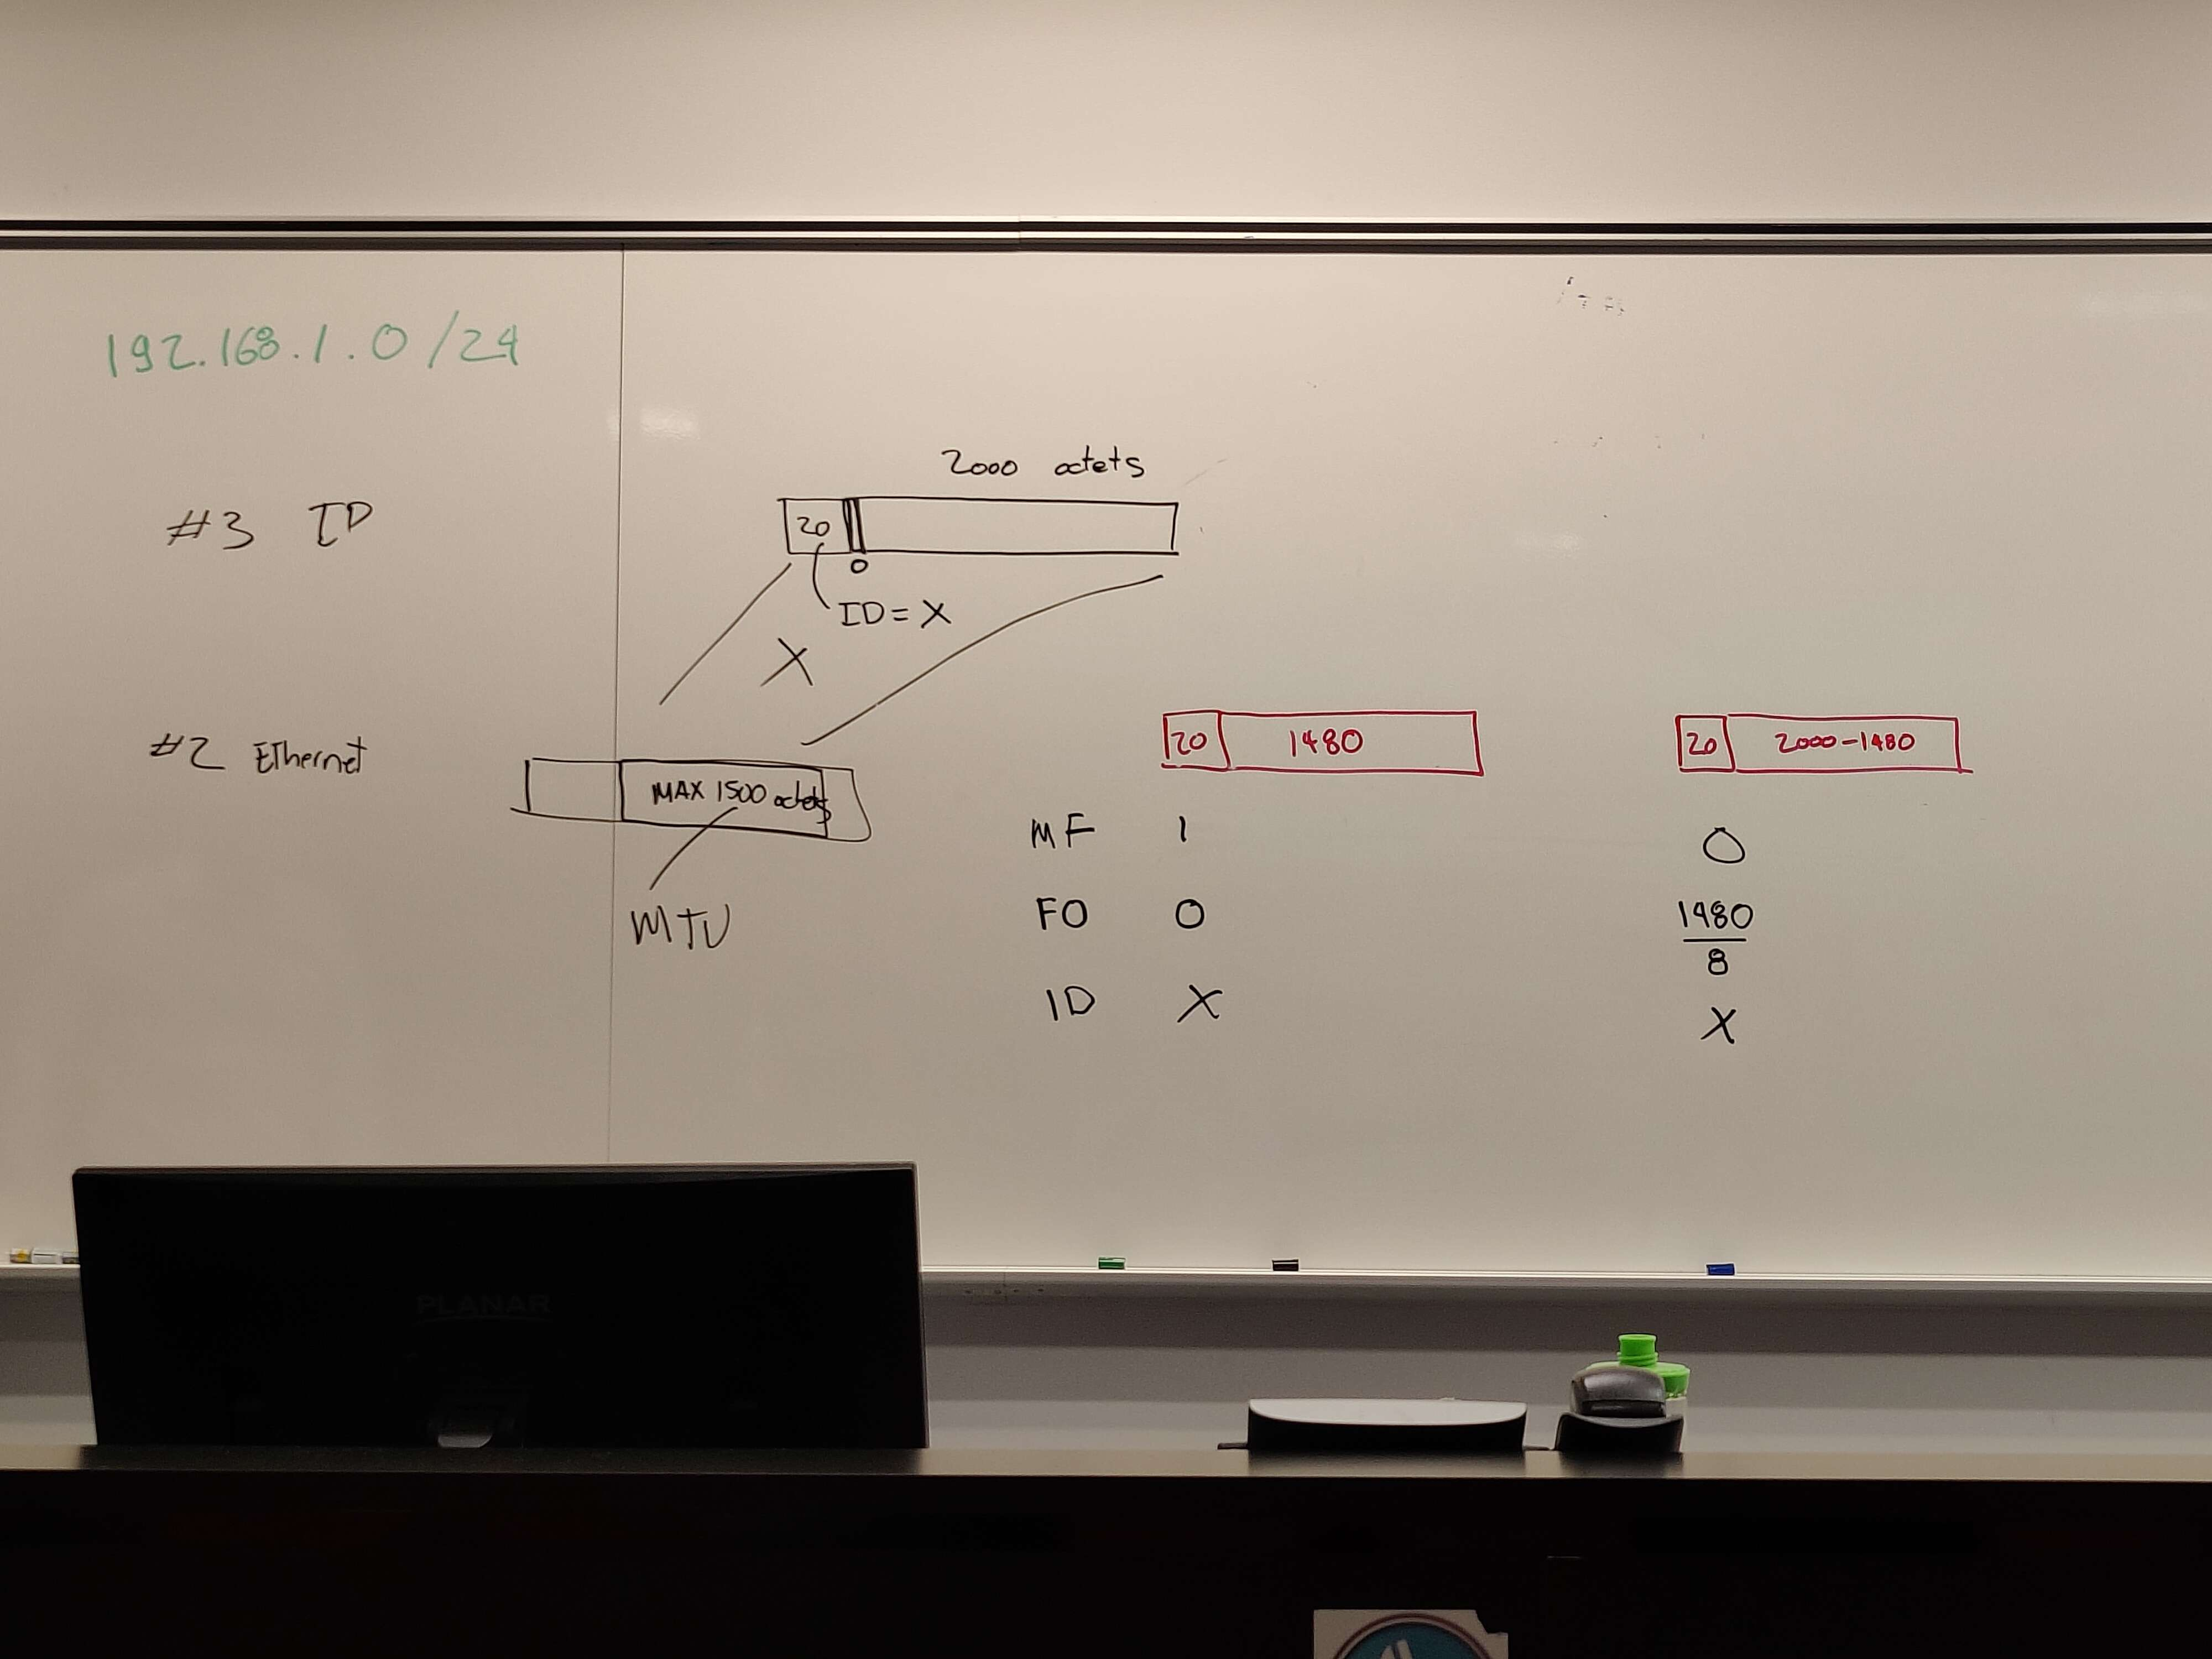 192.168.1.0/24
2000 octets
#3 IP
20
0
ID=X
X
#2 Ethernet
MAX 1500 octets
MTU
20 1480
20 2000-1480
MF 1 0
FO 0 1480
8
ID X X
PLANAR